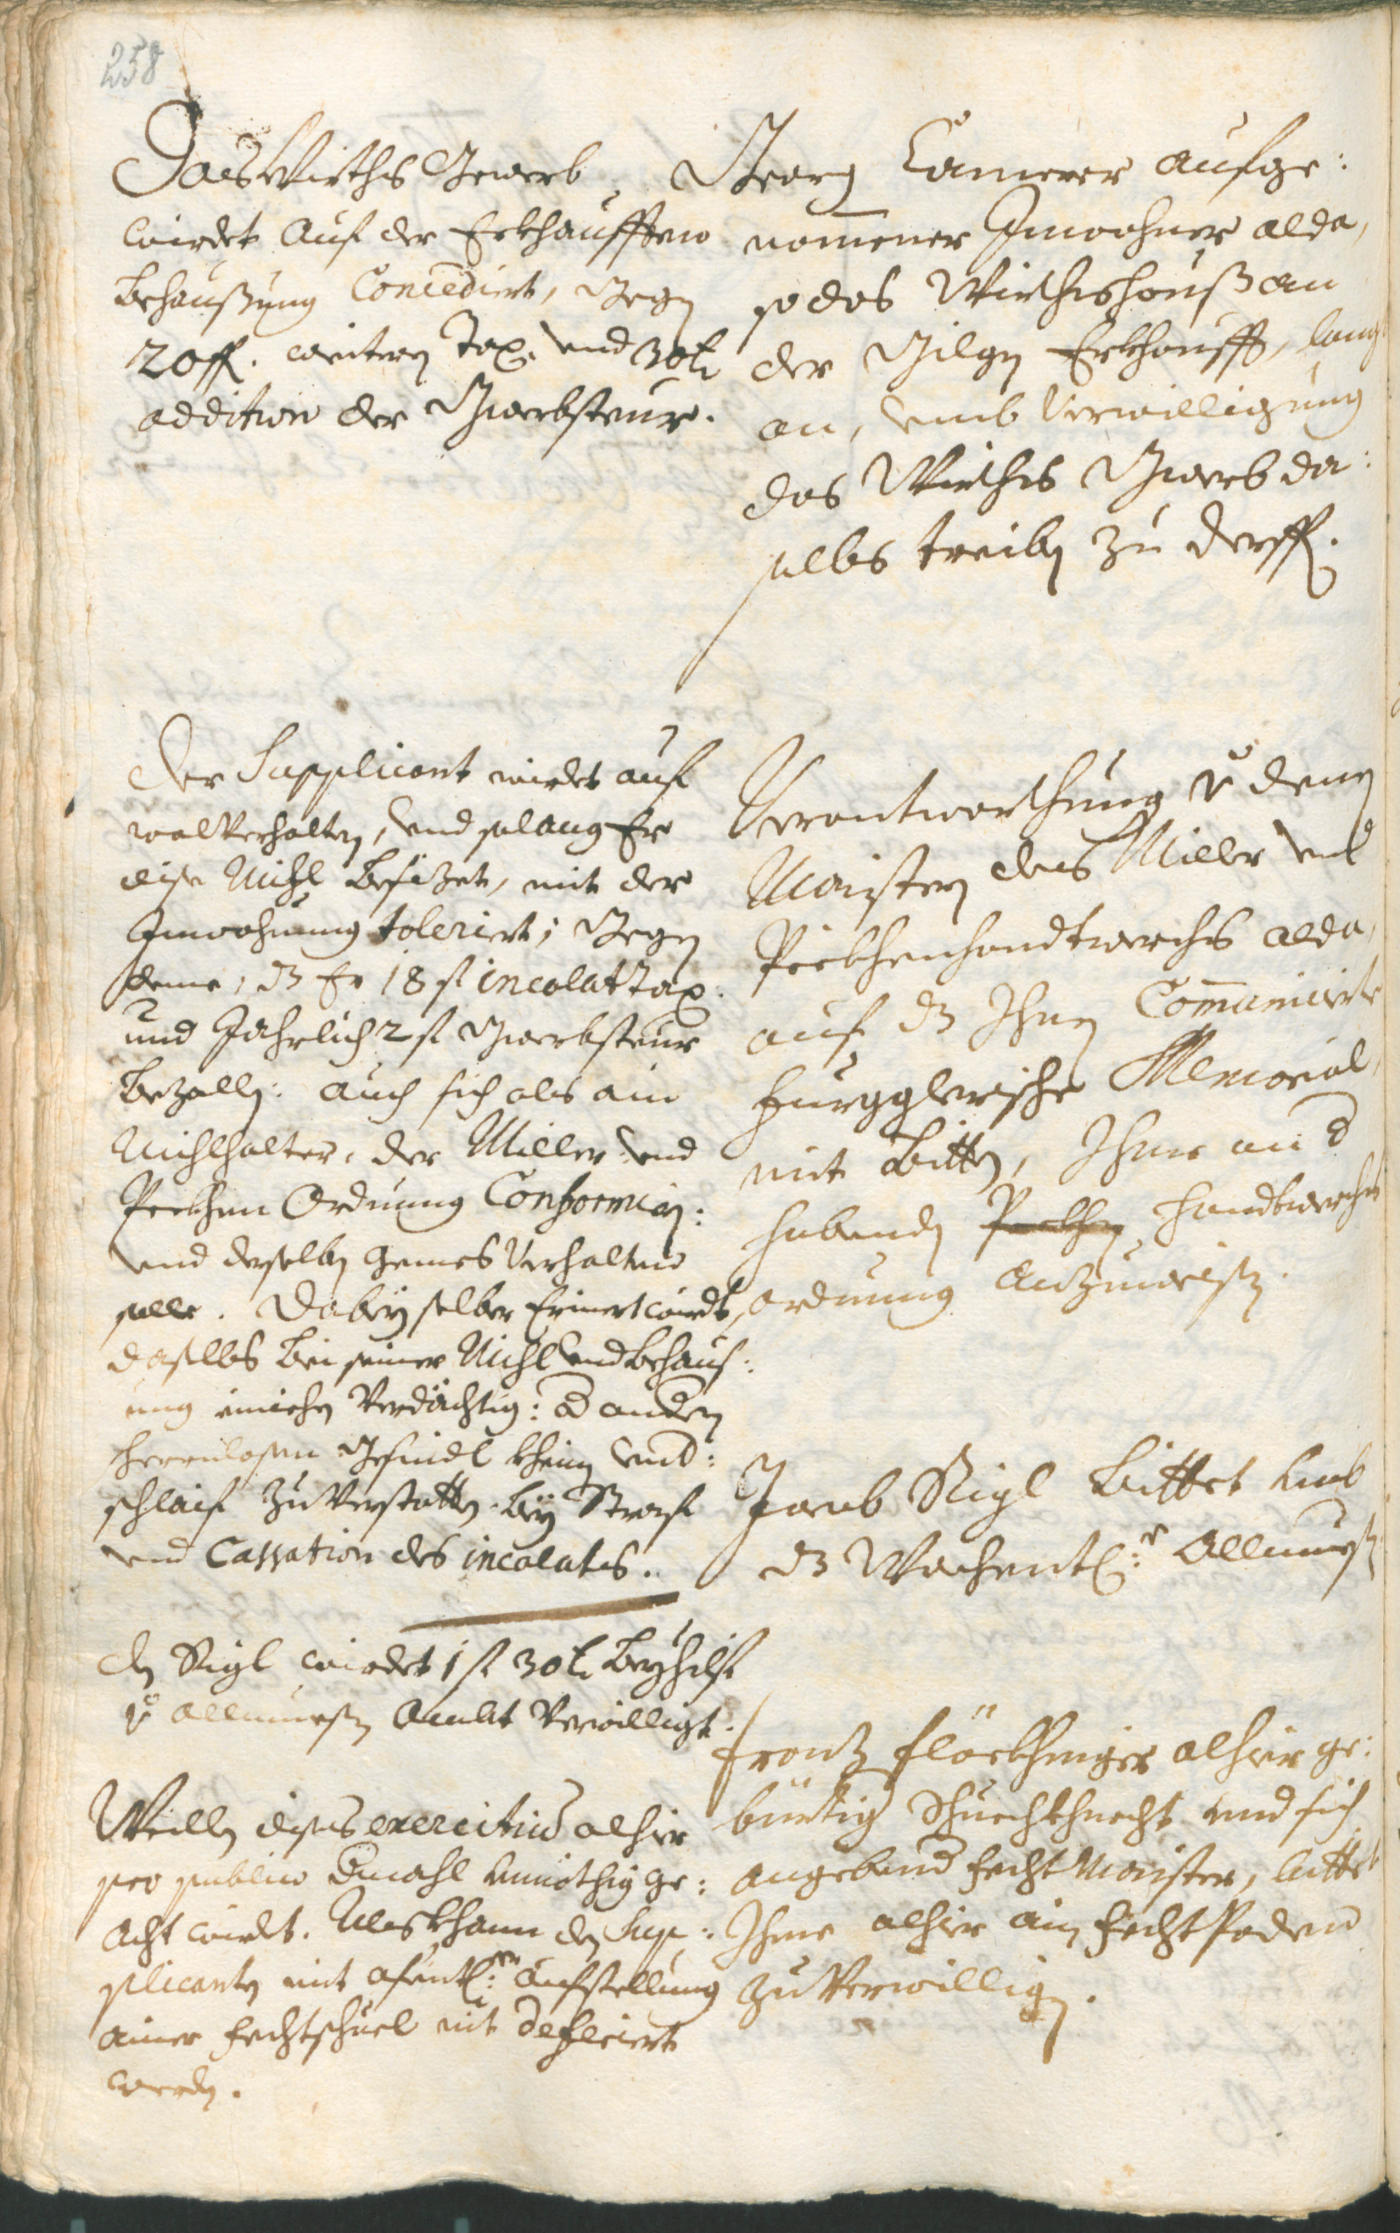 258
Das Würths Gewerb
wirdet Auf der Erkhaufften
Behaußung Concediert, Gegen
20 fl. weitern Tax, und 30 kr
addition der Gwerbsteur.
Georg Camerer aufge:
nomener Inwohner alda,
so das Würthshauß an
der Gilgen Erkhaufft, lang
an, umb Verwilligung
das Würths Gwerb da:
selbs treiben zu derffen.
Der Supplicant wirdet auf
wolverhalten, und solang Er
dise Mihl besizet, mit der
Inwohnung toleriert; Gegen
deme, dz Er 18 fl incolat tax.
und Jahrlich 2 fl Gwerbsteur
Bezallen: auch sich als ain
Mihlhalter, der Miller und
Peckhen Ordnung Conformiern:
und derselben gemes Verhalten
solle. Dabey selber Erinert wirdt,
daselbs bei seiner Mihl und behaus:
ung ainichen Verdächtig: oder andern
herrnlosen Gesindl khein Und:
schlaif zuverstatten. bey Straf
und Cassation des incolats.
Verantworthung von denen
Maistern des Miller und
Peckhenhandtwerchs alda,
auf dz Ihnen Comunicirte
Hurgglerische Memorial,
mit Bitten, Ihme an d
habenden Peckhen Handtwerchs
ordnung Anzuweisen.
Jacob Rigl bittet umb
dz Wochentl: Allmuesen
dem Rigl wirdet 1 fl 30 kr Beyhilf
von allmuesen Ambt Verwilligt.
Frantz Flöckhinger alhier ge:
bürtig Schuechkhnecht und sich
angebend fecht Maister, bittet
Ihme alhier ain fecht Poden
zu Verwilligen.
Weillen dises exercitium alhier
pro publico dermahl unnöthig ge:
acht wirdt. Alß khann dem Sup:
plicanten mit ofentl: aufstellung
ainer fechtschuel nit deferiert
werden.